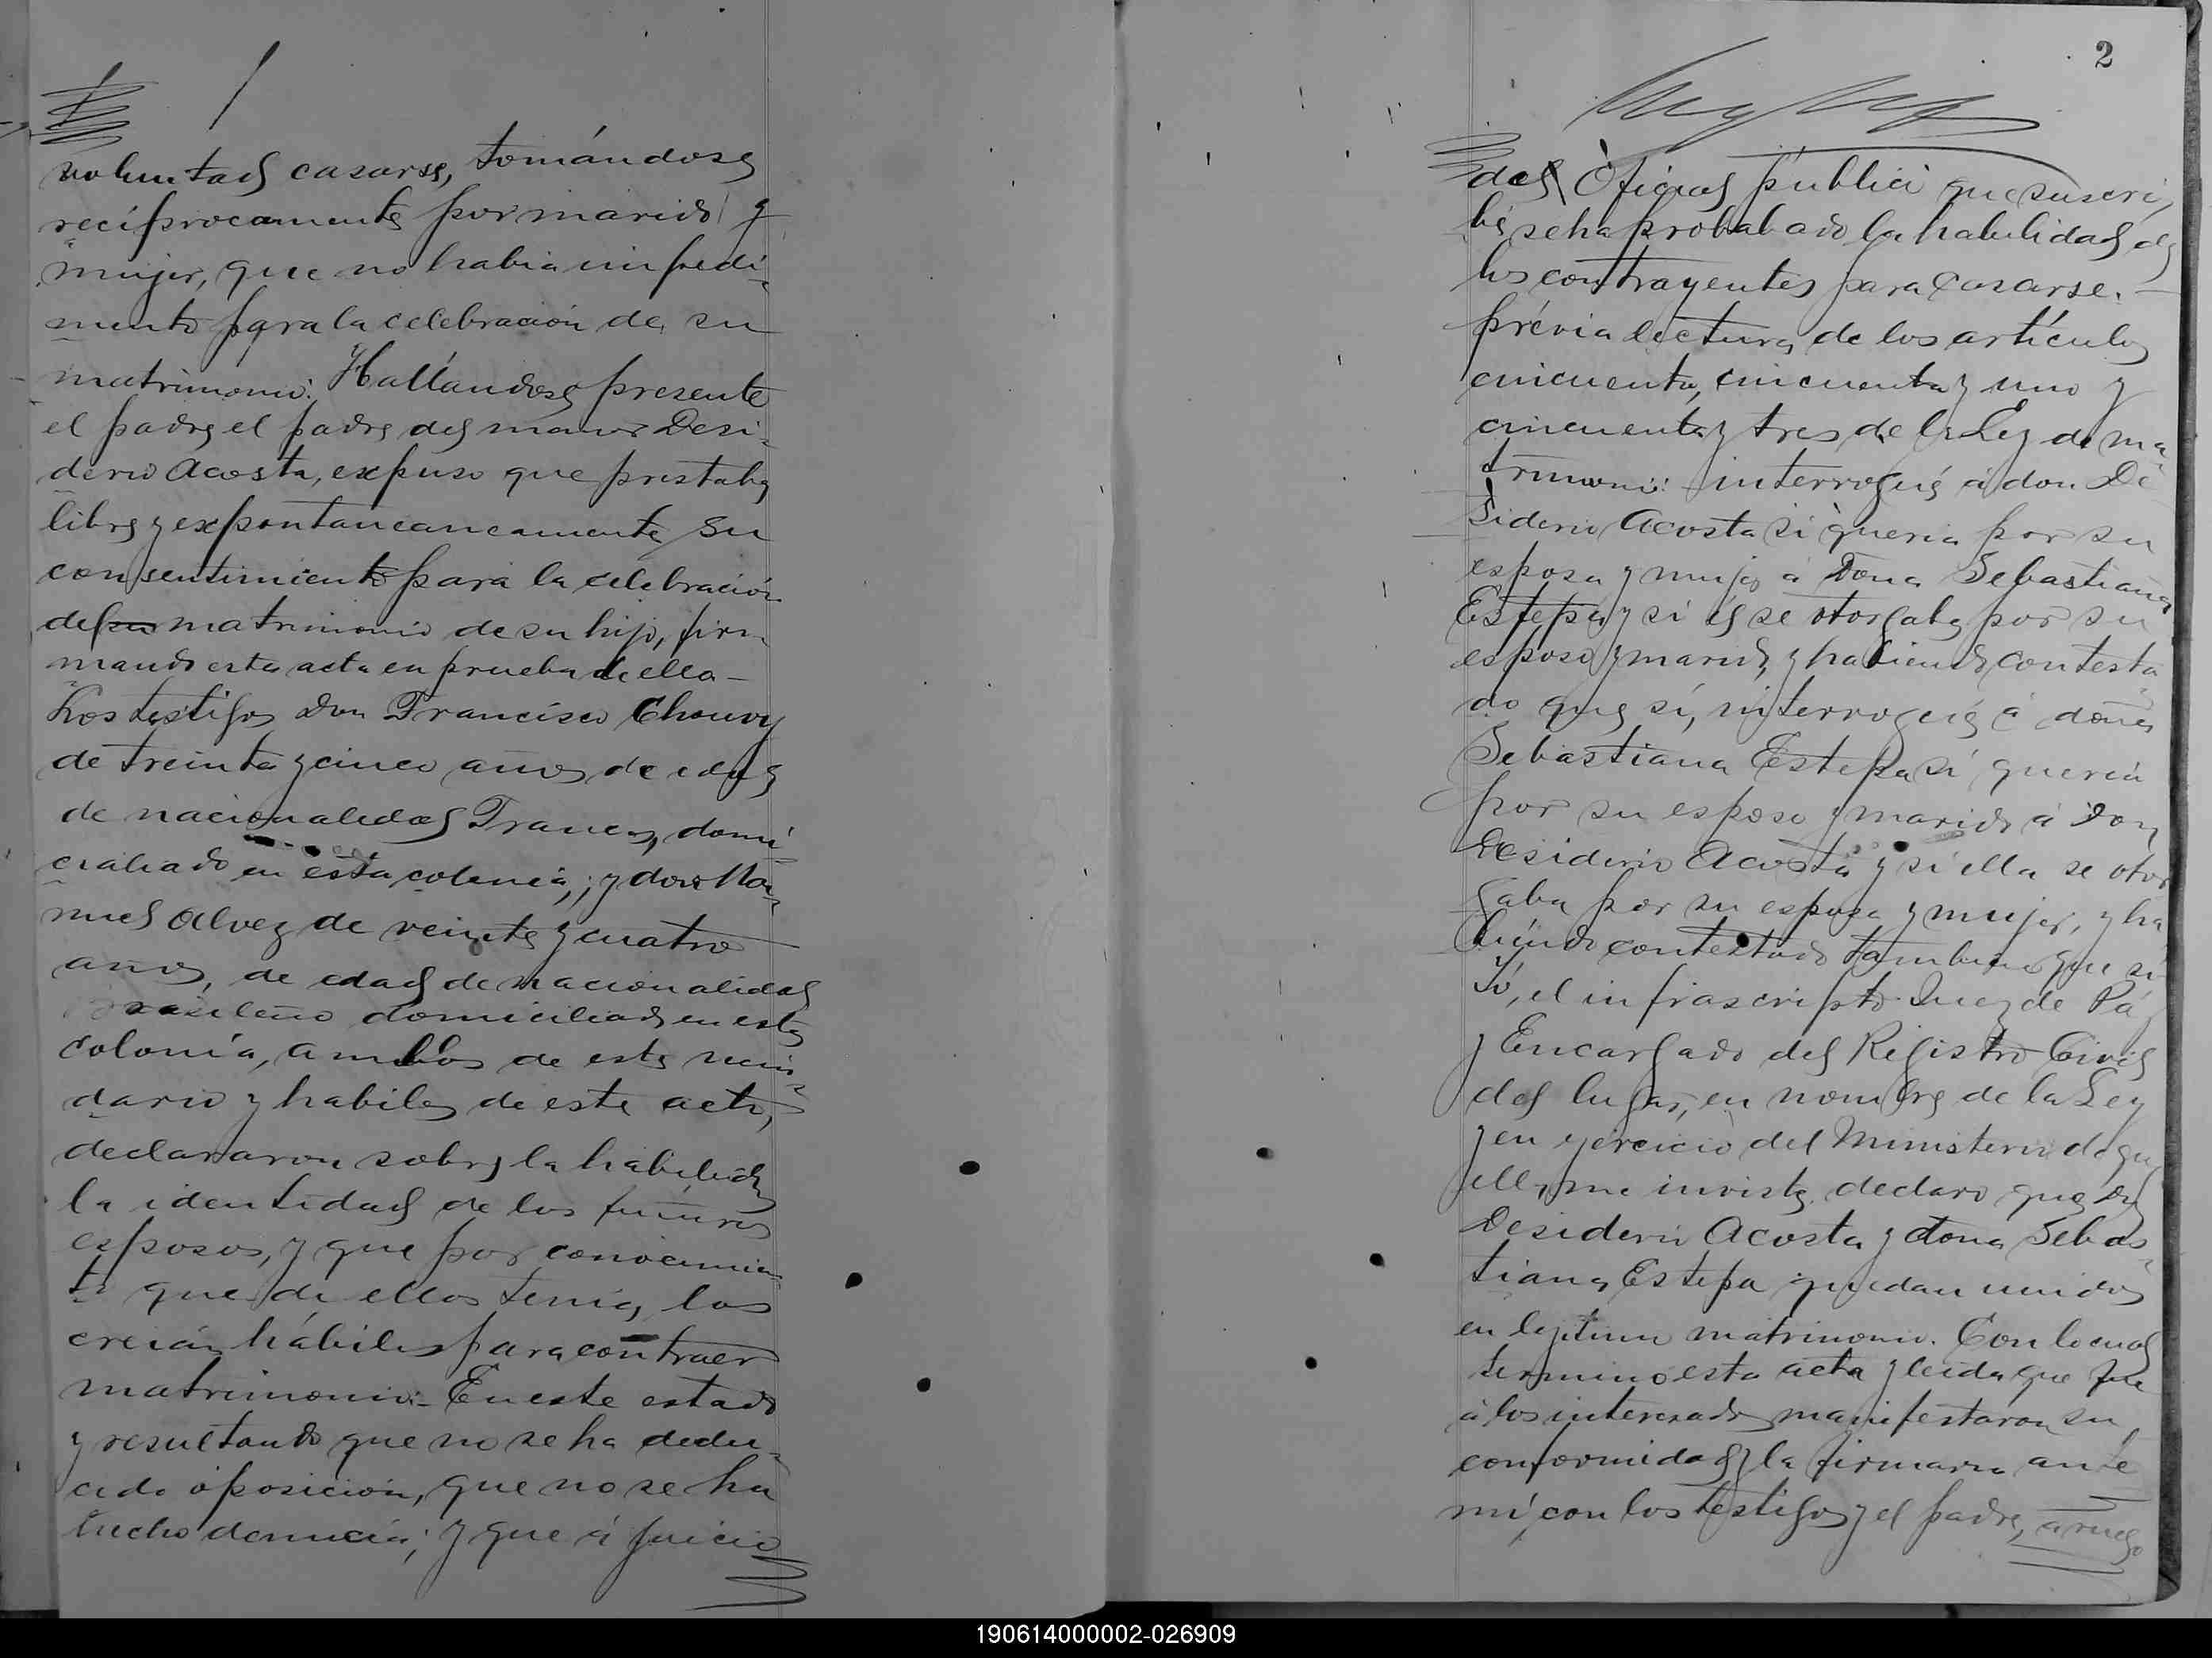 voluntad casarse, tomándose
recíprocamente por marido y
mujer, que no habia impedi-
mento para la celebración de su
matrimonio. Hallándose presente
el padre el padre del menor Desi-
derio Acosta, expuso que prestaba
libre y expontaneaneamente su
consentimiento para la celebración
del matrimonio de su hijo, fir-
mando esta acta en prueba de ello—
Los testigos Don Francisco Chouvy
de treinta y cinco años de edad
de nacionalidad Frances, domi-
ciliado en esta colonia; y don Ma-
nuel Alvez de veinte y cuatro
años, de edad de nacionalidad
brasileño domiciliado en esta
colonia, ambos de este vecin-
dario y habiles de este acto,
declararon sobre la habilidad
la identidad de los futuros
esposos, y que por conocimien-
to que de ellos tenia, los
creián hábiles para contraer
matrimonio.- En este estado
y resultando que no se ha dedu-
cido oposición, que no se ha
hecho denuncia; y que á juicio
2
del Oficial público que suscri-
be se ha probabado la habilidad de
los contrayentes para casarse.—
prévia lectura de los artículos
cincuenta, cincuenta y uno y
cincuenta y tres de la Ley de ma-
trimonio: interrogué á don De
siderio Acosta si queria por su
esposa y mujer á Doña Sebastiana
Estepa y si él se otorgaba por su
esposo y marido, y habiendo contesta-
do que sí, interrogué á doña
Sebastiana Estepa sí queria
por su esposo y marido á Don
Desiderio Acosta y si ella se otor
gaba por su esposa y mujer, y ha
biendo contestado tambien que sí
Yó, el infrascripto Juez de Páz
y Encargado del Registro Civil
del lugar, en nombre de la Ley
y en ejercicio del Ministerio de que
ella me inviste declaro que Dn
Desiderio Acosta y doña Sebas-
tiana Estepa quedan unidos
en legítimo matrimonio. Con lo cual
termino esta acta y leida que fue
á los interesados manifestaron su
conformidad y la firmaron ante
mí, con los testigos y el padre, a ruego
190614000002-026909